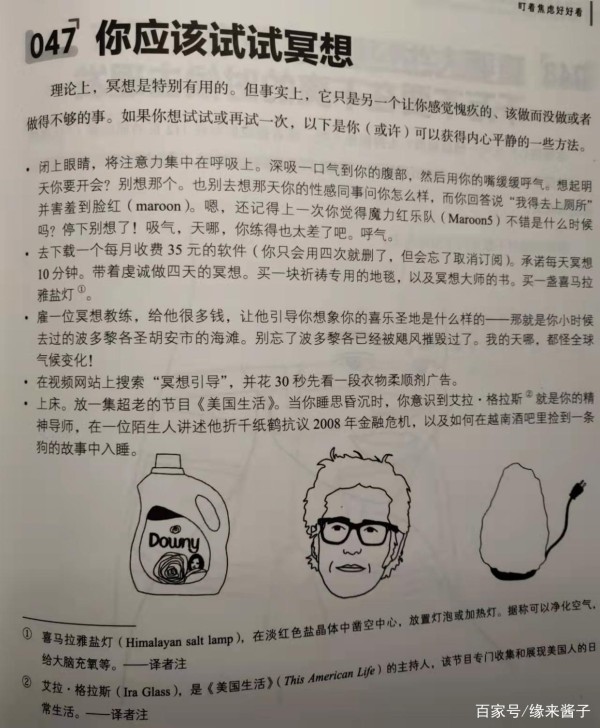 盯着焦虑好好看
047 你应该试试冥想
理论上，冥想是特别有用的。但事实上，它只是另一个让你感觉愧疚的、该做而没做或者
做得不够的事。如果你想试试或再试一次，以下是你（或许）可以获得内心平静的一些方法。
· 闭上眼睛，将注意力集中在呼吸上。深吸一口气到你的腹部，然后用你的嘴缓缓呼气。想起明
天你要开会？别想那个。也别去想那天你的性感同事问你怎么样，而你回答说“我得去上厕所”
并害羞到脸红（maroon）。嗯，还记得上一次你觉得魔力红乐队（Maroon5）不错是什么时候
吗？停下别想了！吸气，天哪，你练得也太差了吧。呼气。
· 去下载一个每月收费 35 元的软件（你只会用四次就删了，但会忘了取消订阅）。承诺每天冥想
10 分钟。带着虔诚做四天的冥想。买一块祈祷专用的地毯，以及冥想大师的书。买一盏喜马拉
雅盐灯①。
· 雇一位冥想教练，给他很多钱，让他引导你想象你的喜乐圣地是什么样的——那就是你小时候
去过的波多黎各圣胡安市的海滩。别忘了波多黎各已经被飓风摧毁过了。我的天哪，都怪全球
气候变化！
· 在视频网站上搜索“冥想引导”，并花 30 秒先看一段衣物柔顺剂广告。
· 上床。放一集超老的节目《美国生活》。当你睡思昏沉时，你意识到艾拉·格拉斯②就是你的精
神导师，在一位陌生人讲述他折千纸鹤抗议 2008 年金融危机，以及如何在越南酒吧里捡到一条
狗的故事中入睡。
Downy
① 喜马拉雅盐灯（Himalayan salt lamp），在淡红色盐晶体中凿空中心，放置灯泡或加热灯。据称可以净化空气，
给大脑充氧等。——译者注
② 艾拉·格拉斯（Ira Glass），是《美国生活》（This American Life）的主持人，该节目专门收集和展现美国人的日
常生活。——译者注
百家号/缘来酱子